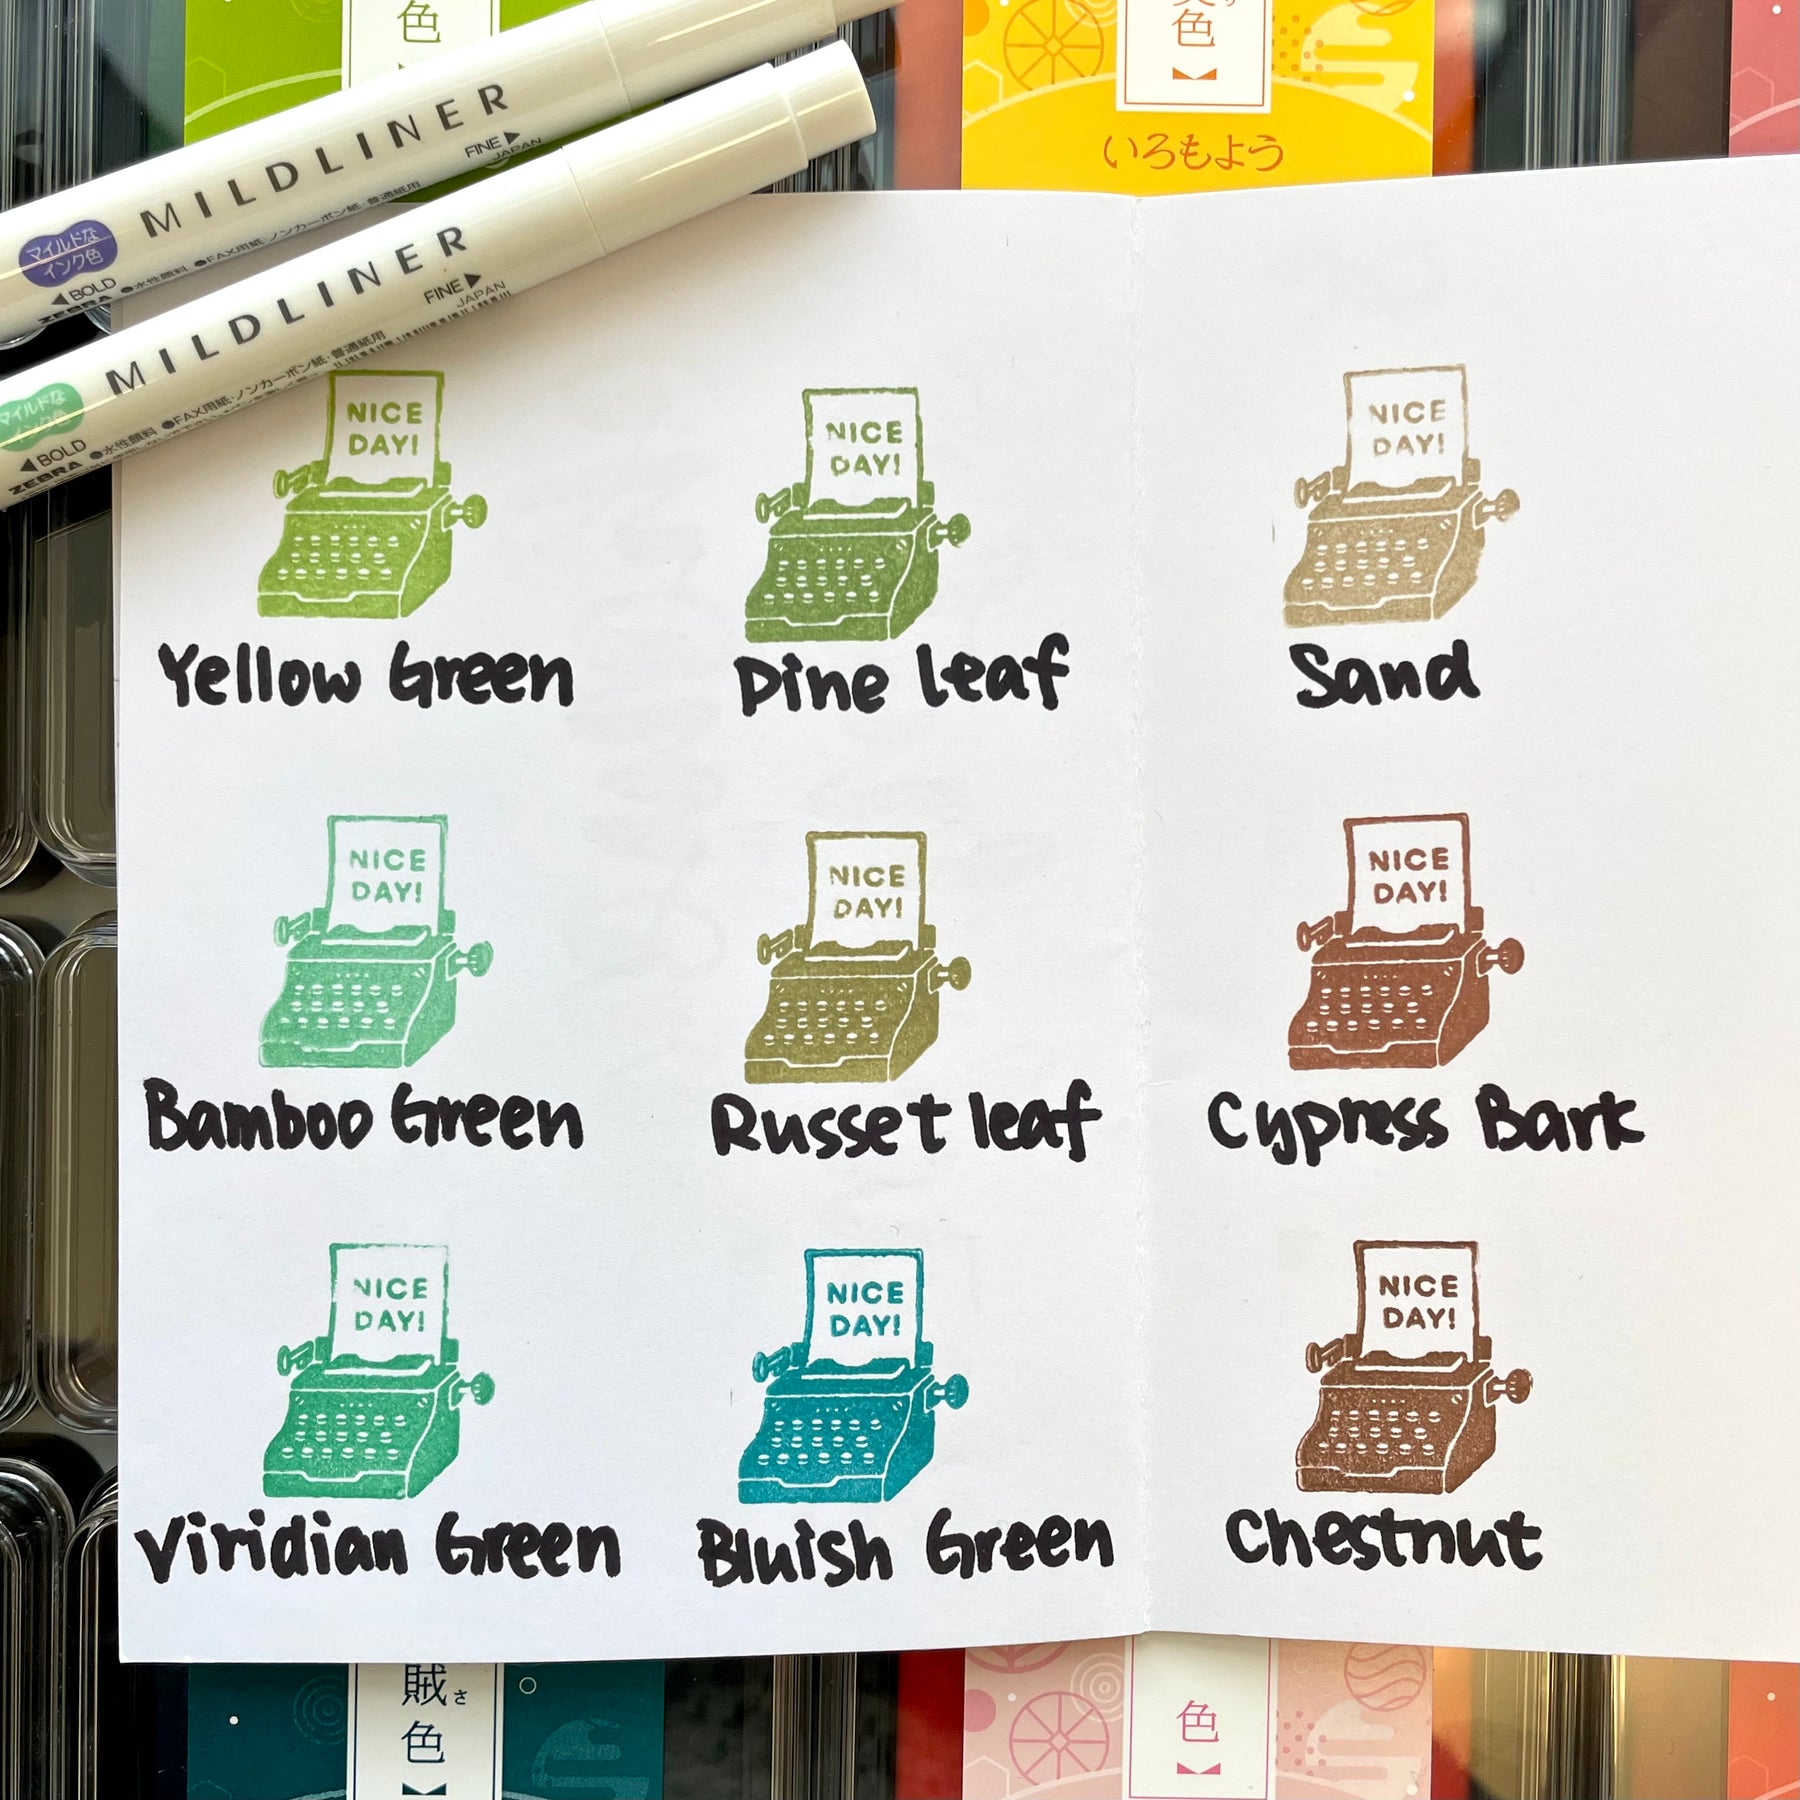 色
色
いろもよう
MILDLINER
FINE▶
JAPAN
マイルドな
インク色
◀BOLD
ZEBRA
●水性顔料 ●FAX用紙・ノンカーボン紙・普通紙用
MILDLINER
FINE▶
JAPAN
マイルドな
インク色
◀BOLD
ZEBRA
●水性顔料 ●FAX用紙・ノンカーボン紙・普通紙用
NICE
DAY!
Yellow Green
NICE
DAY!
Pine leaf
NICE
DAY!
Sand
NICE
DAY!
Bamboo Green
NICE
DAY!
Russet leaf
NICE
DAY!
Cypress Bark
NICE
DAY!
Viridian Green
NICE
DAY!
Bluish Green
NICE
DAY!
Chestnut
賊さ
色
色